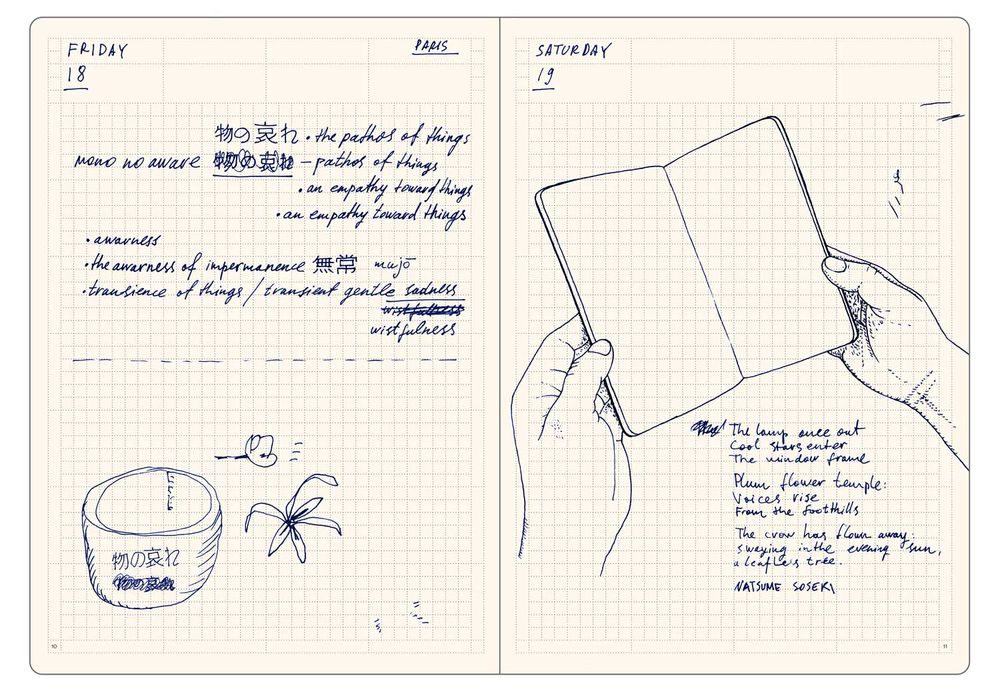 FRIDAY
18
PARIS
物の哀れ • the pathos of things
mono no aware 物の哀れ – pathos of things
• an empathy toward things
• an empathy toward things
• awarness
• the awarness of impermanence 無常 mujō
• transience of things / transient gentle sadness
wistfullness
wistfulness
物の哀れ
物の哀れ
10
SATURDAY
19
The lamp once out
Cool stars enter
The window frame
Plum flower temple:
Voices rise
From the foothills
The crow has flown away:
swaying in the evening sun,
a leafless tree.
NATSUME SOSEKI
11